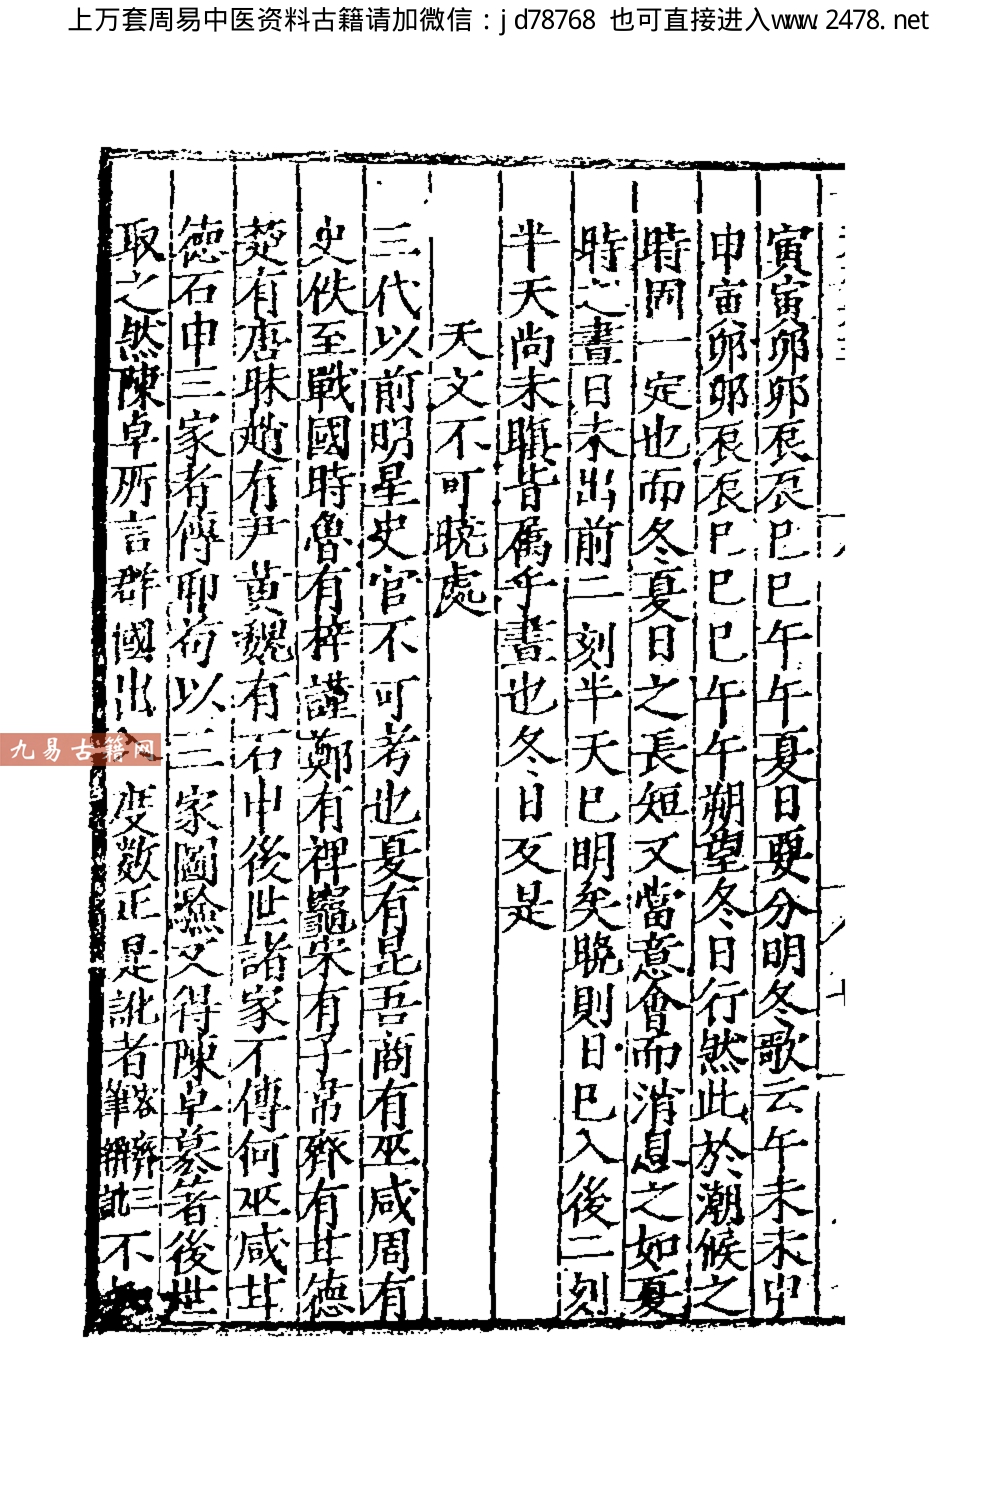 上万套周易中医资料古籍请加微信：jd78768 也可直接进入www.2478.net
寅寅卯卯辰辰巳巳午午夏日要分明冬歌云午未未申
申寅卯卯辰辰巳巳巳午午朔望冬日行然此於潮候之
時固一定也而冬夏日之長短又當意會而消息之如夏
時之晝日未出前二刻半天已明矣晚則日已入後二刻
半天尚未暝皆属乎晝也冬日反是
天文不可晓處
三代以前明星史官不可考也夏有昆吾商有巫咸周有
史佚至戰國時魯有梓謹鄭有裨竈宋有子常齊有甘德
楚有唐昧趙有尹黄魏有石申後世諸家不傳何巫咸甘
德石申三家者傳耶苟以三家圖驗又得陳卓摹著後世
取之然陳卓所言群國出入度数正是訛者容齋三筆辨訛不
九易古籍网